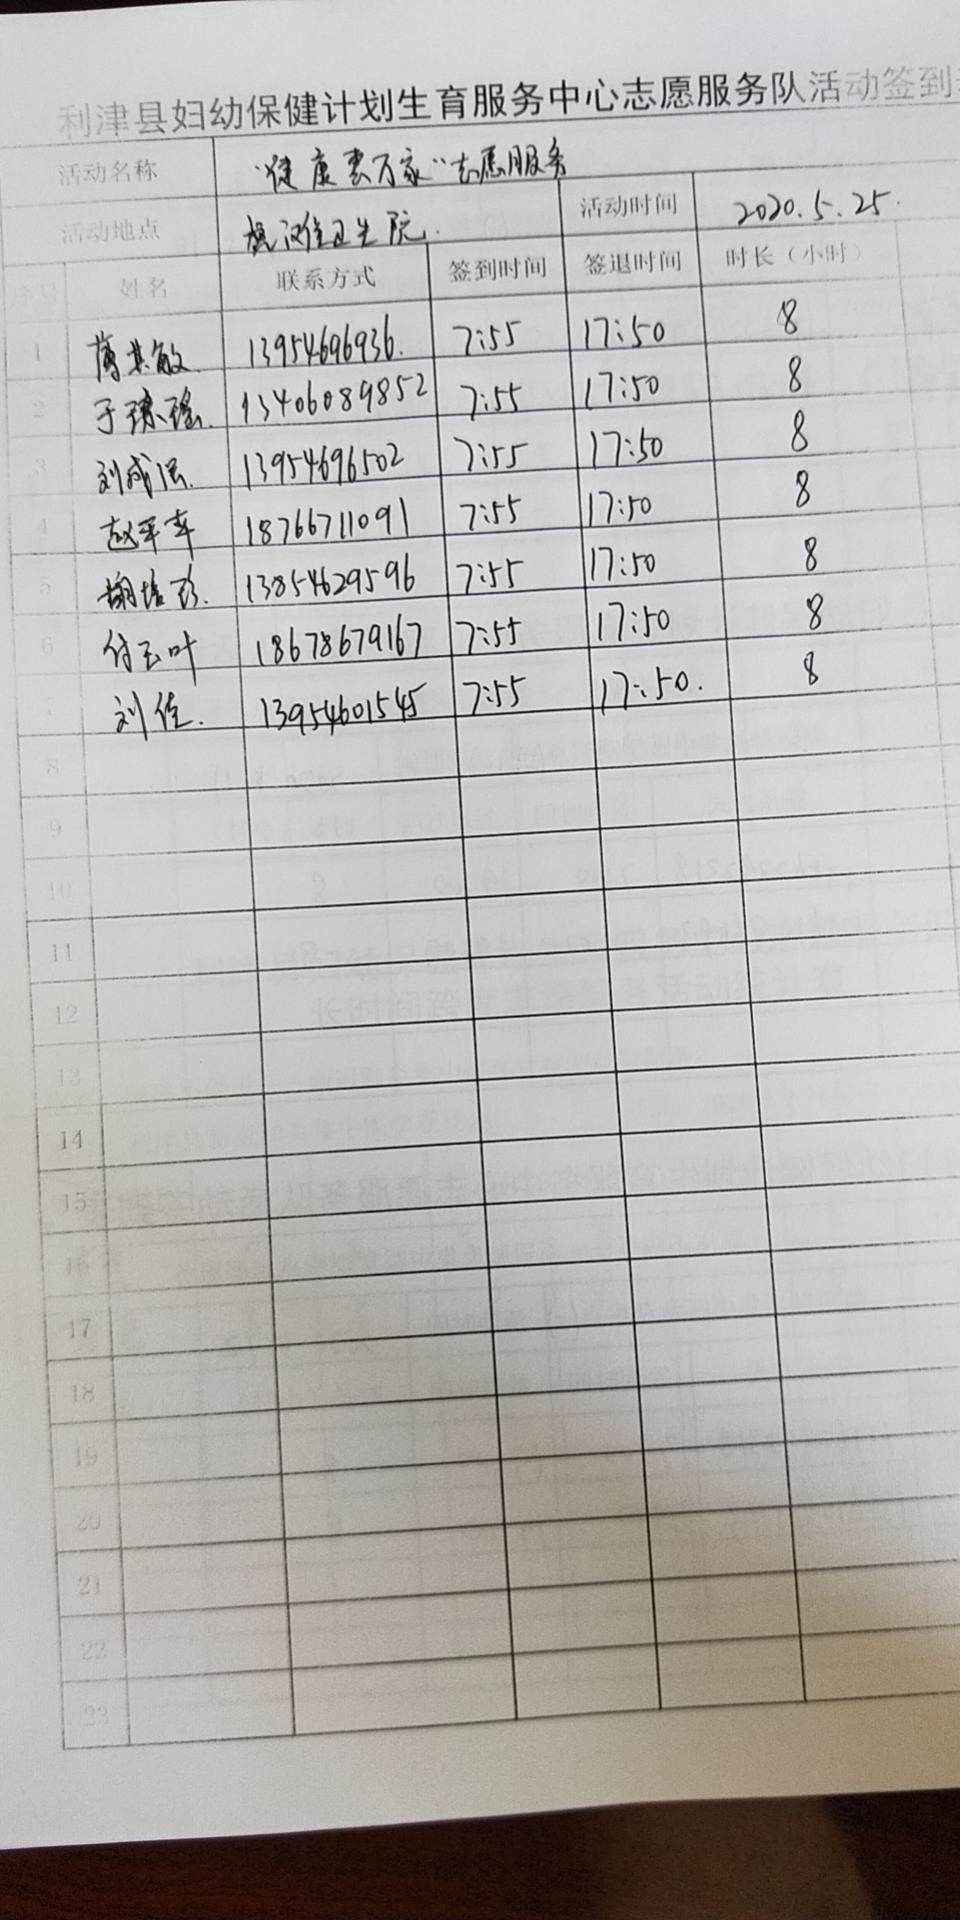 利津县妇幼保健计划生育服务中心志愿服务队活动签到
活动名称 "健康惠万家"志愿服务
活动地点 卫生院. 活动时间 2020.5.25.
序号 姓名 联系方式 签到时间 签退时间 时长（小时）
1 薄其敏 13954696936. 7:55 17:50 8
2 于琼瑶. 13406089852 7:55 17:50 8
3 刘成 13954696502 7:55 17:50 8
4 赵平幸 18766711091 7:55 17:50 8
5 胡培珍. 13854629596 7:55 17:50 8
6 付玉叶 18678679167 7:55 17:50 8
7 刘佳. 13954601545 7:55 17:50. 8
8
9
10
11
12
13
14
15
16
17
18
19
20
21
22
23